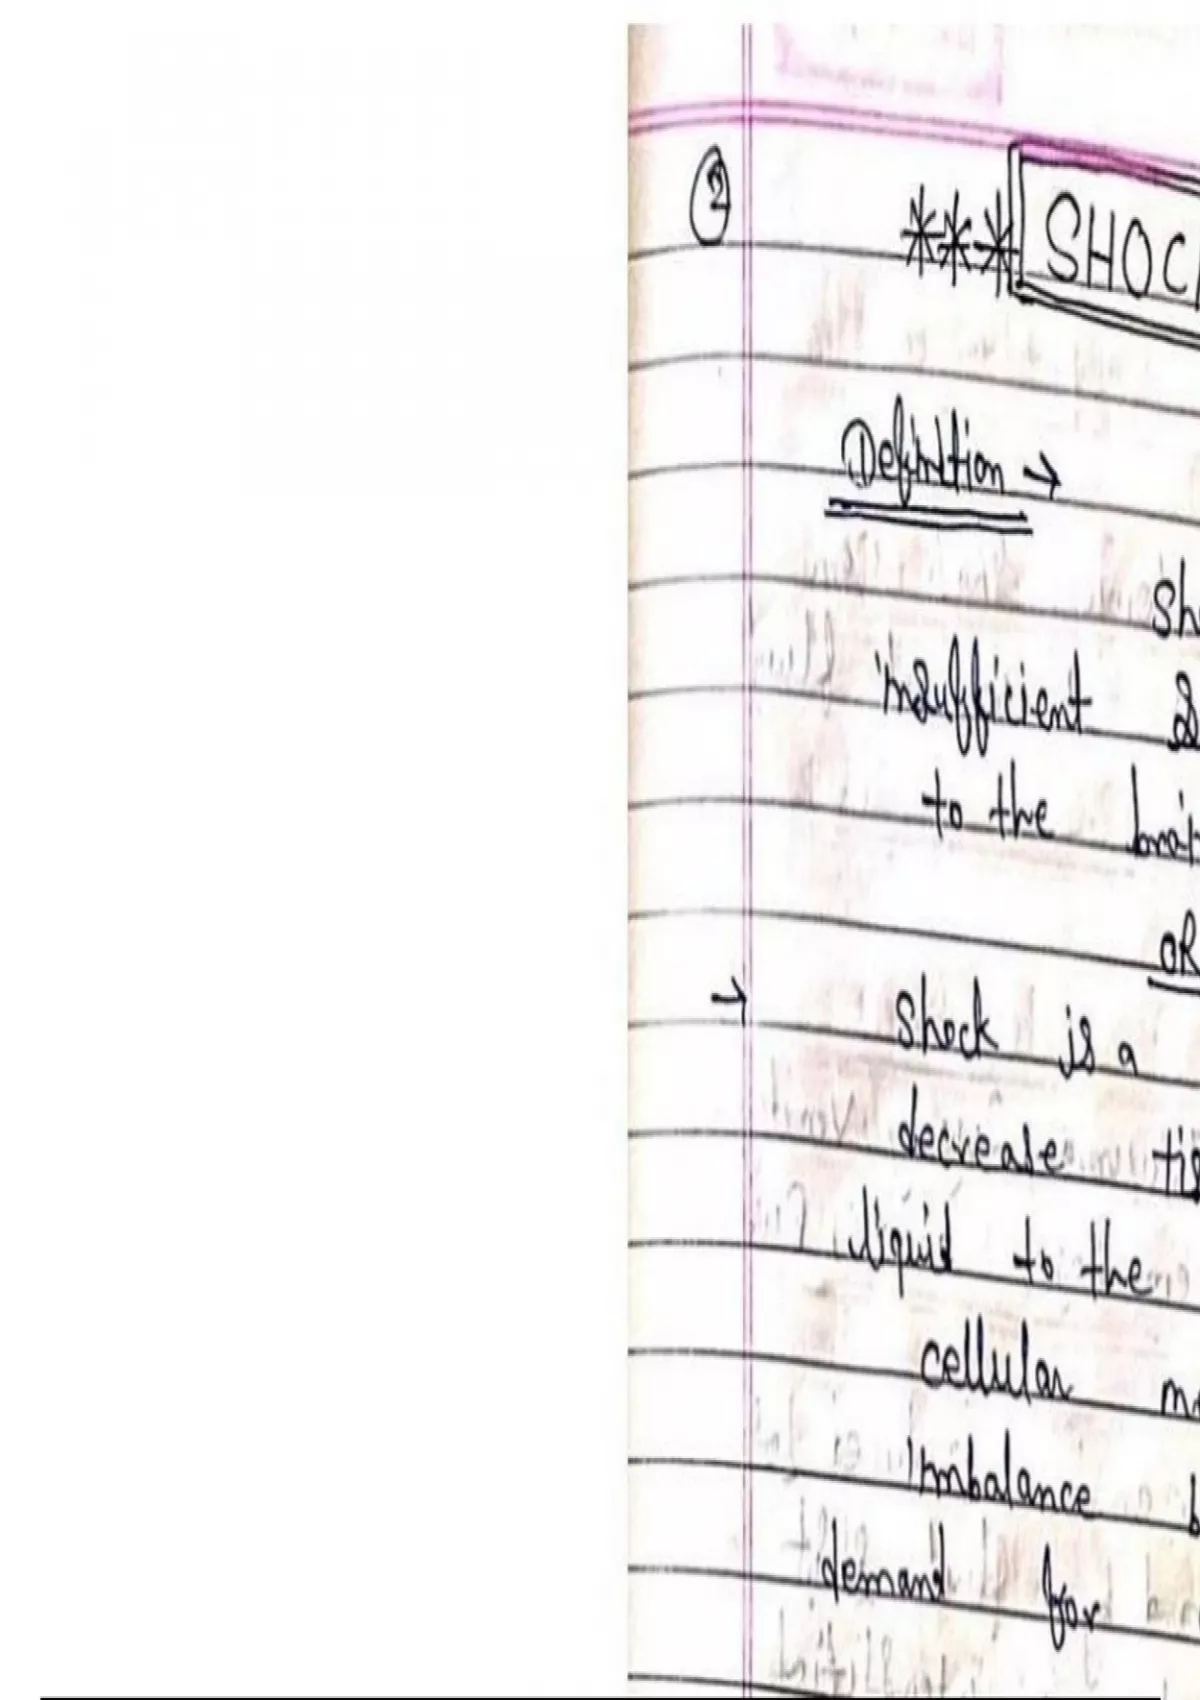 2
*** SHOC
Definition →
Sh
insufficient
to the brai
OR
→ Shock is a
decrease tis
liquid to the
cellular m
imbalance b
demand for